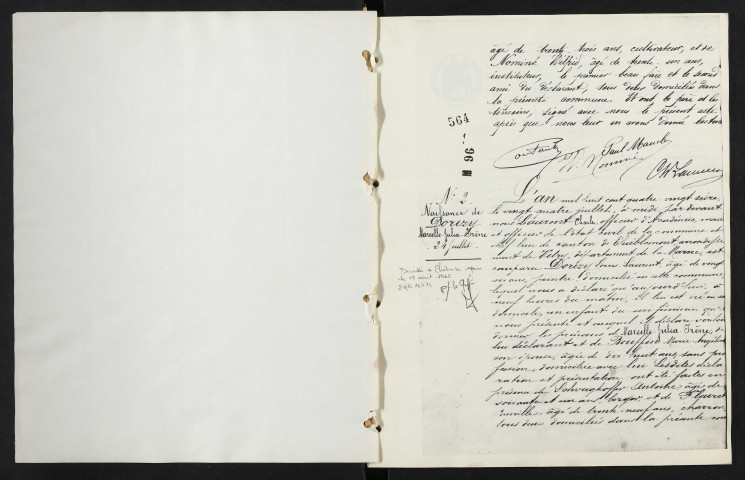 âgé de trente trois ans, cultivateur, et de
Nominé Wilfrid, âgé de trente un ans,
instituteur, le premier beau frère et le second
ami du déclarant, tous deux domiciliés dans
la présente commune. Et ont, le père et les
témoins, signé avec nous le présent acte
après que nous leur en avons donné lecture
564
M 96
Paul Maucl
Nominé
N° 2
Naissance de
Dorizy
Marcelle Julia Irène
24 juillet
L'an mil huit cent quatre vingt seize,
le vingt quatre juillet, à midi, par devant
nous Laurent Charles, officier d'Académie, maire
et officier de l'état civil de la commune et
chef lieu de canton de Thiéblemont arrondisse
ment de Vitry, département de la Marne, est
comparu Dorizy Louis Laurent, âgé de vingt
six ans, peintre, domicilié en cette commune
lequel nous a déclaré qu'aujourd'hui, à
neuf heures du matin, il lui est né en son
domicile, un enfant du sexe féminin qu'il
nous présente et auquel il déclare vouloir
donner les prénoms de Marcelle Julia Irène, de
lui déclarant et de Marie
son épouse, âgée de dix huit ans, sans pro
fession, domiciliée avec lui. Lesdites décla
ration et présentation ont été faites en
présence de Schweighoffer Antoine, âgé de
soixante et un ans, berger, et de Flouret
Camille, âgé de trente neuf ans, charron
tous deux domiciliés dans la présente com